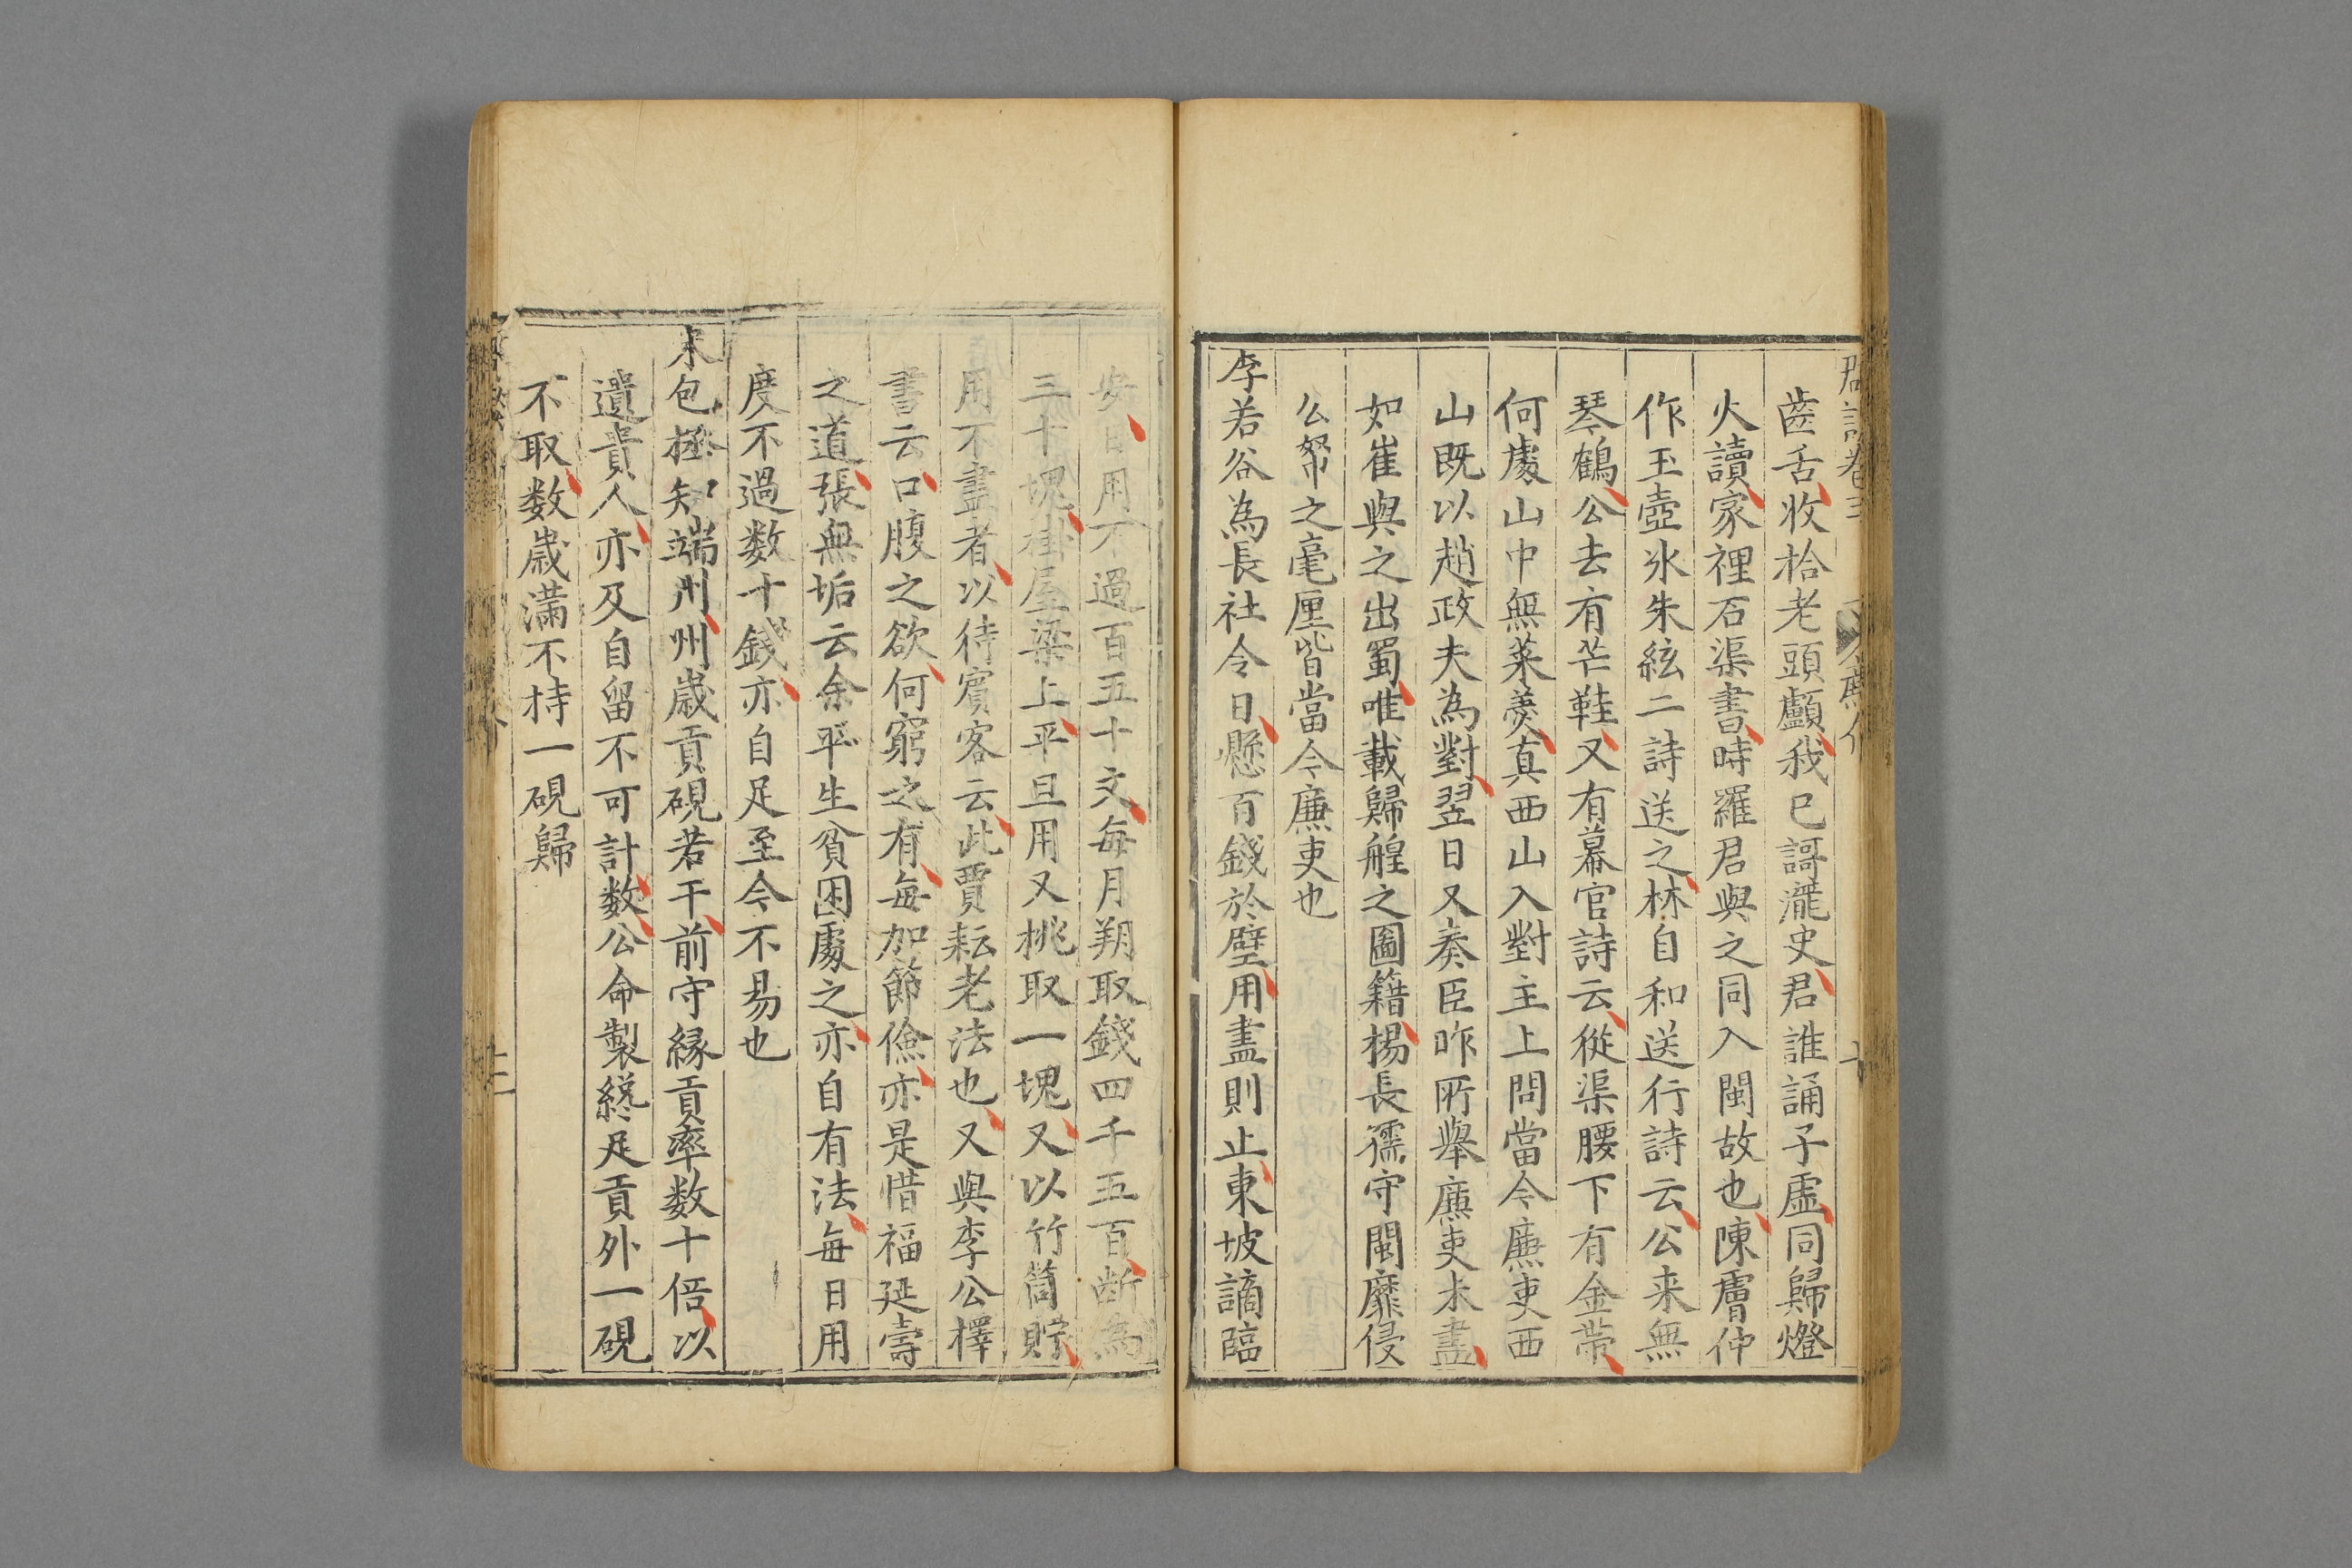 齒舌收拾老頭顱我已謌瀧史君誰誦子虛同歸燈
火讀家裡石渠書時羅君與之同入閩故也陳膚仲
作玉壺氷朱絃二詩送之林自和送行詩云公来無
琴鶴公去有芒鞋又有幕官詩云從渠腰下有金帶
何處山中無菜羹真西山入對主上問當今廉吏西
山既以趙政夫為對翌日又奏臣昨所舉廉吏未盡
如崔與之出蜀唯載歸艎之圖籍楊長孺守閩靡侵
公帑之毫厘皆當今廉吏也
李若谷為長社令日懸百錢於壁用盡則止東坡謫臨
安日用不過百五十文每月朔取錢四千五百断為
三十塊掛屋梁上平旦用又桃取一塊又以竹筒貯
用不盡者以待賓客云此賈耘老法也又與李公擇
書云口腹之欲何窮之有每加節儉亦是惜福延壽
之道張無垢云余平生貧困處之亦自有法每日用
度不過数十錢亦自足至今不易也
宋包拯知端州州歲貢硯若干前守緣貢率数十倍以
遺貴人亦及自留不可計数公命製纔足貢外一硯
不取数歲滿不持一硯歸